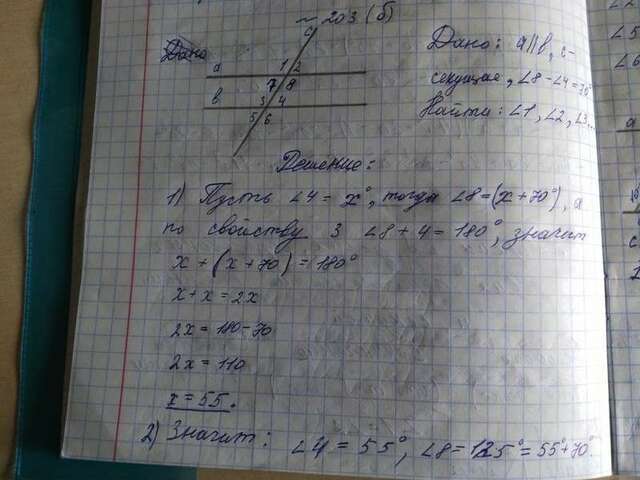 ~ 203 (б)
Дано
c
a 1 2
7 8
в 3 4
5 6
Дано: a||в, с-
секущая, ∠8 - ∠4 =
Найти: ∠1, ∠2, ∠3...
Решение:
1) Пусть ∠4 = x°, тогда ∠8 = (x + 70°), а
по свойству 3 ∠8 + 4 = 180°, значит
x + (x + 70) = 180°
x + x = 2x
2x = 180 - 70
2x = 110
x = 55.
2) Значит: ∠4 = 55°, ∠8 = 125° = 55° + 70°.
∠2
∠5
∠6
a